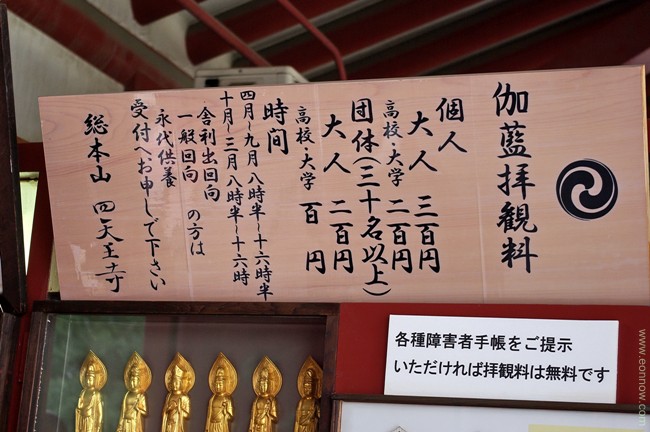 伽藍拝観料
個人
大人 三百円
高校・大学 二百円
団体(三十名以上)
大人 二百円
高校・大学 百円
時间
四月~九月 八時半~十六時半
十月~三月 八時半~十六時
舎利出回向
一般回向 の方は
永代供養
受付へお申しで下さい
総本山 四天王寺
各種障害者手帳をご提示
いただければ拝観料は無料です
www.eonnow.com